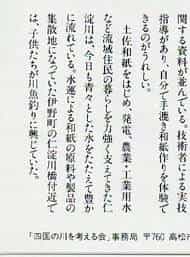 関する資料が並んでいる。技術者による実技
指導があり、自分で手漉き和紙作りを体験で
きるのがうれしい。
　土佐和紙をはじめ、発電、農業・工業用水
など流域住民の暮らしを力強く支えてきた仁
淀川は、今日も青々とした水をたたえて豊か
に流れている。水運による和紙の原料や製品の
集散地になっていた伊野町の仁淀川橋付近で
は、子供たちが川魚釣りに興じていた。
「四国の川を考える会」事務局 〒760 高松市